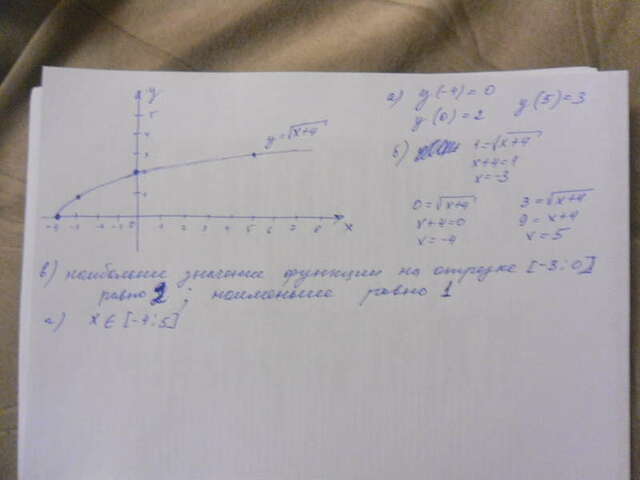 y
5
4
3
1
y=√x+4
-4 -3 -2 -1 0 1 2 3 4 5 6 7 8 x
а) y(-4)=0
y(0)=2 y(5)=3
б) 1=√x+4
x+4=1
x=-3
0=√x+4
x+4=0
x=-4
3=√x+4
9=x+4
x=5
в) наибольшие значение функции на отрезке [-3;0]
равно 2; наименьшие равно 1
г) x∈[-4;5]